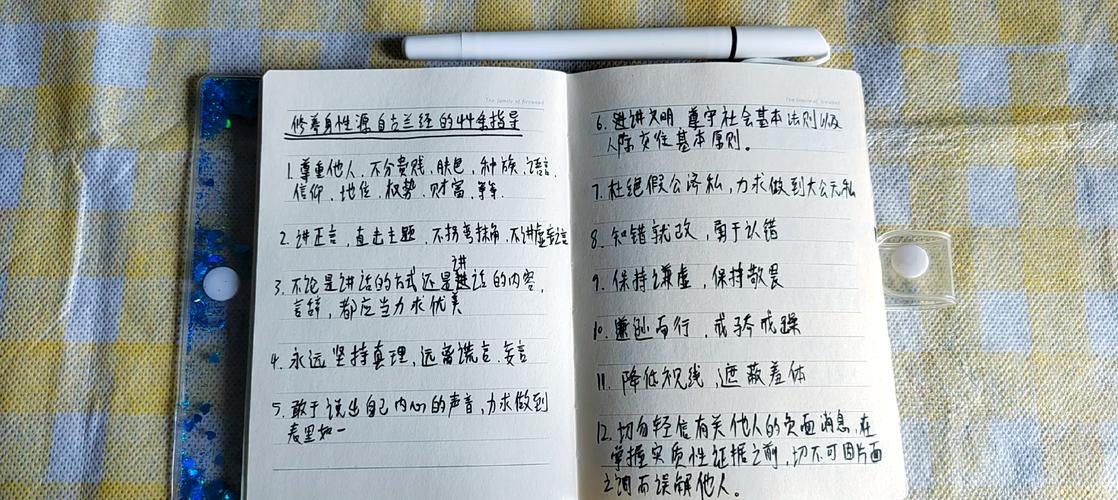 The family of firewood
修养身性源自古兰经的44条指导
1. 尊重他人、不分贵贱、肤色、种族、语言、
信仰、地位、权势、财富、等等.
2. 讲正言,直击主题,不拐弯抹角,不讲虚妄言
3. 不论是讲话的方式还是讲话的内容,
言辞,都应当力求优美
4. 永远坚持真理,远离谎言、妄言
5. 敢于说出自己内心的声音,力求做到
表里如一
The family of firewood
6. 讲文明 遵守社会基本法则以及
人际交往基本原则。
7. 杜绝假公济私,力求做到大公无私
8. 知错就改,勇于认错
9. 保持谦虚,保持敬畏
10. 谦逊而行,戒骄戒躁
11. 降低视线,遮蔽羞体
12. 切勿轻信有关他人的负面消息,在
掌握实质性证据之前,切不可因片面
之词而误解他人。